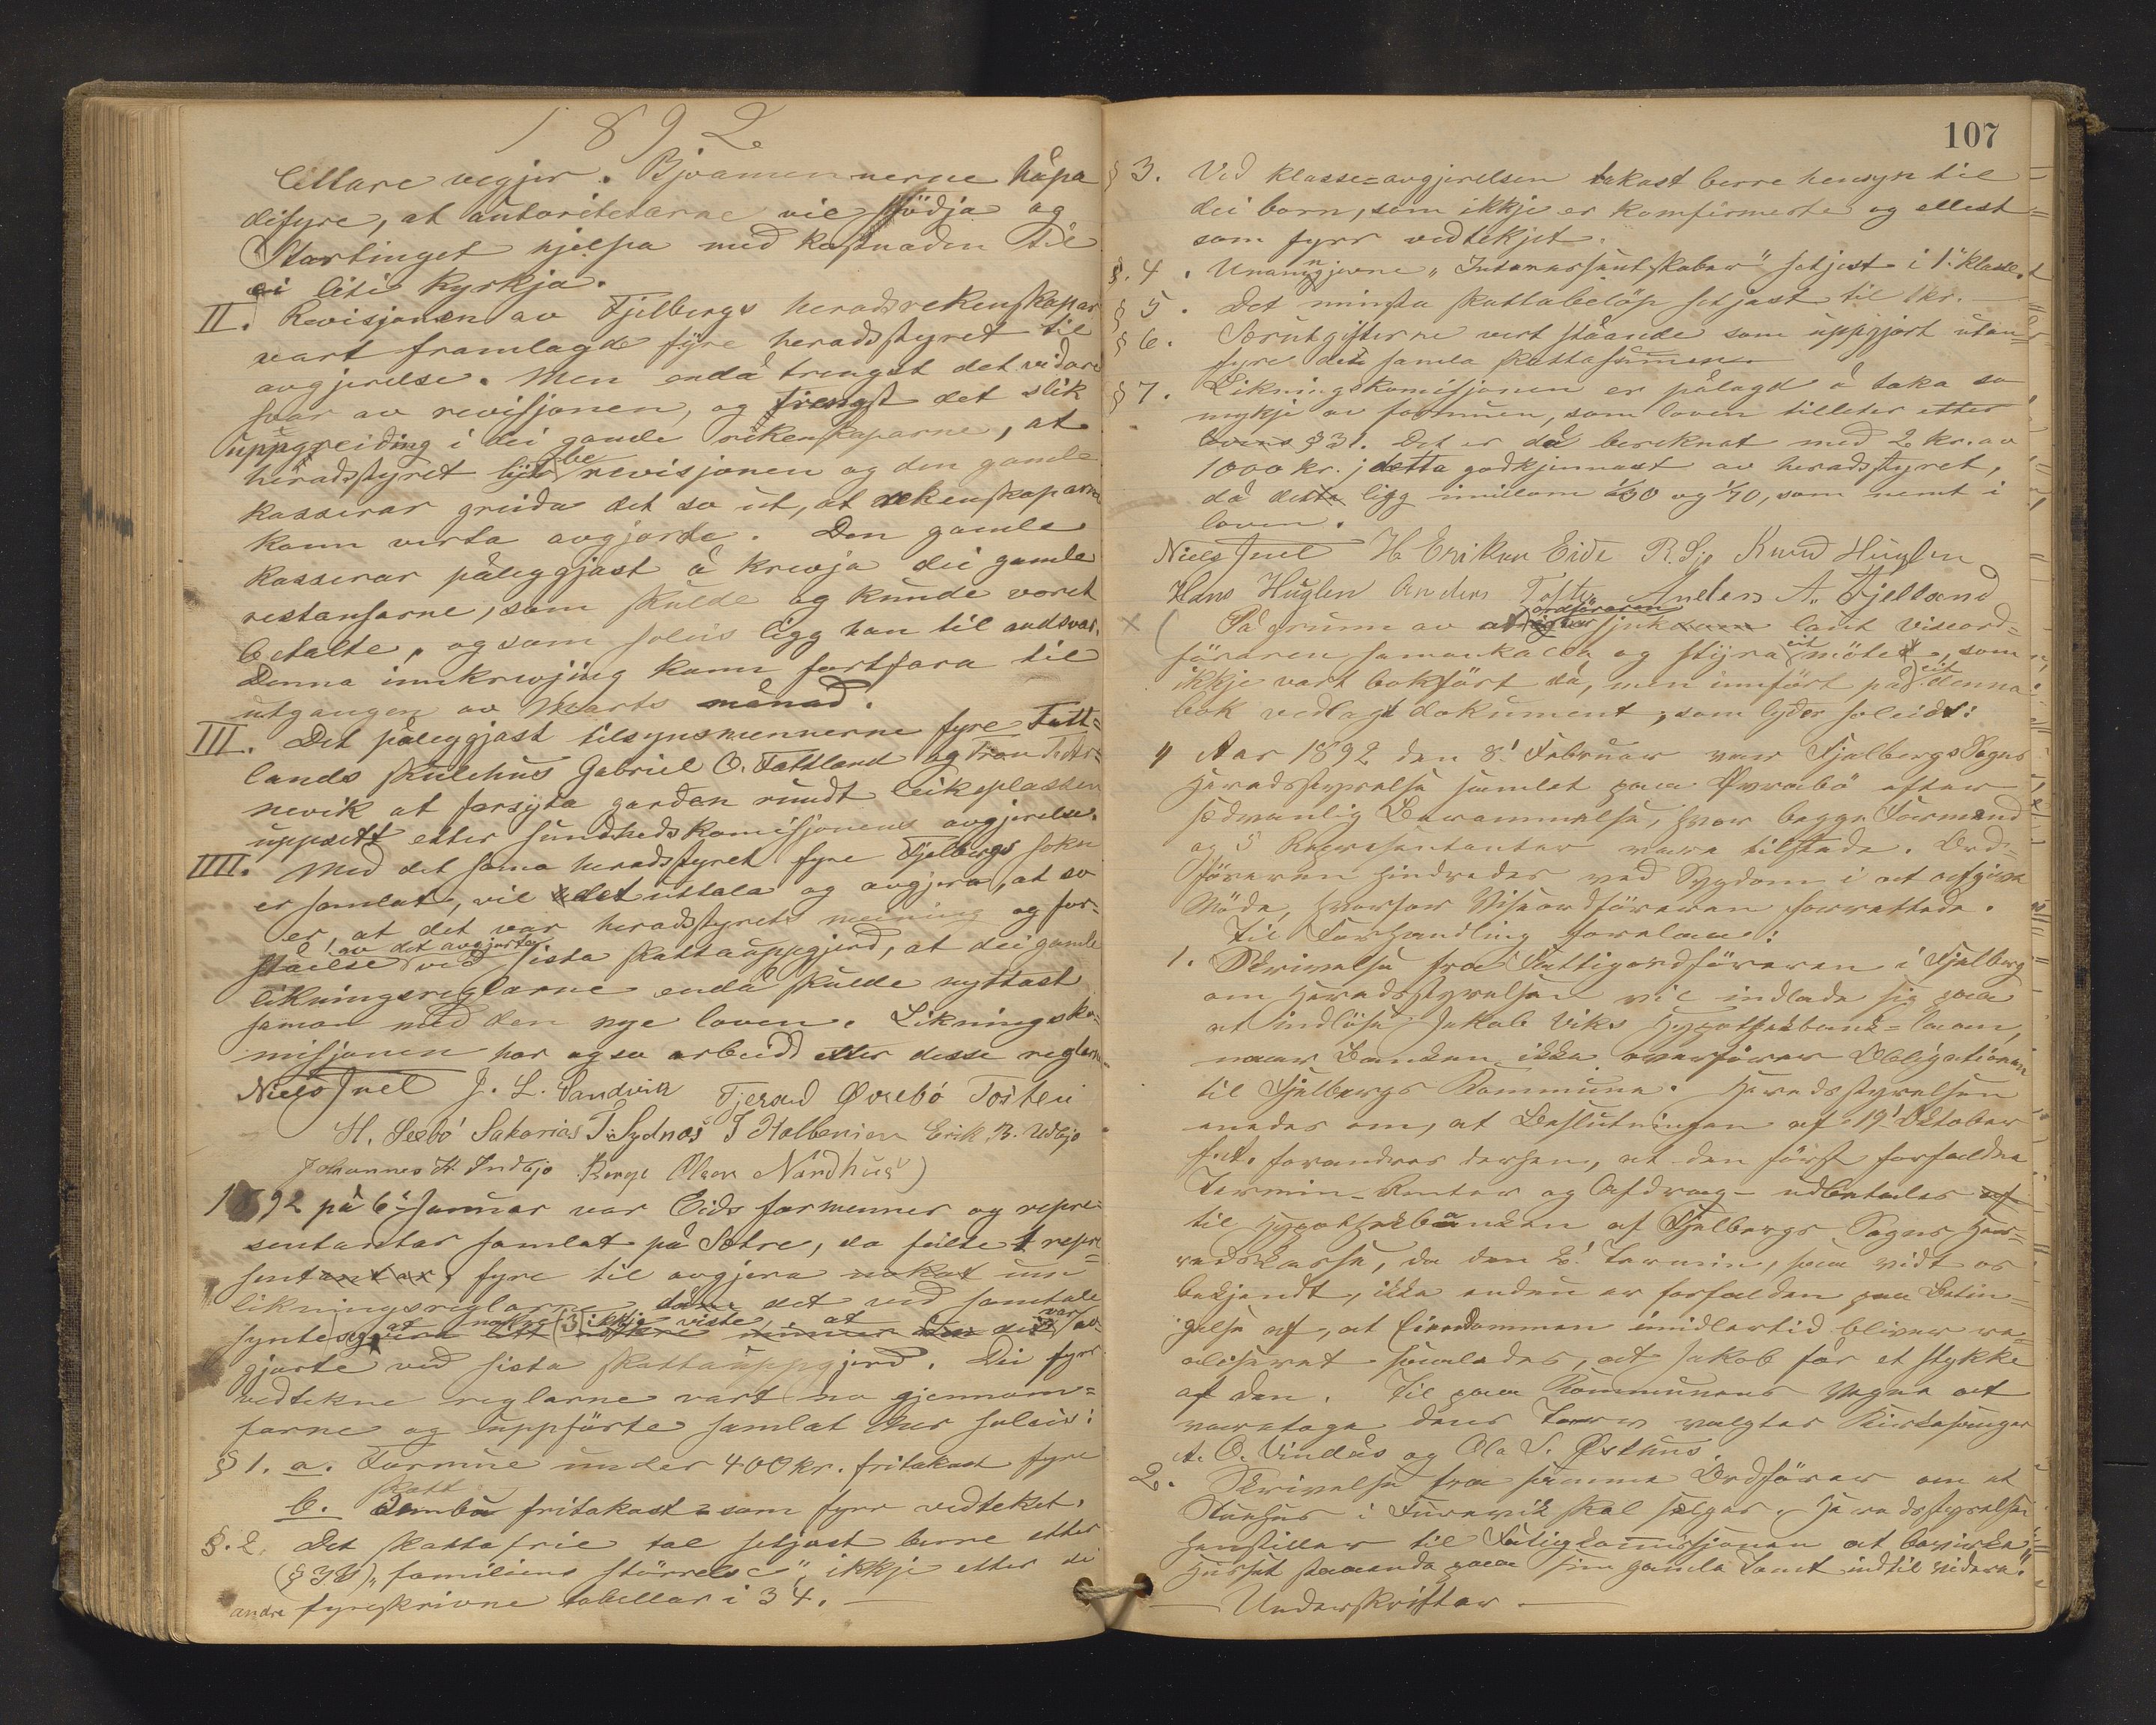 1892
lettare vegjer. Bjoamennerne håpa
difyre, at autoritetarne vil stödja og
Stortinget hjelpa med kostnaden til
ei liti kyrkja.
II. Revisjonen av Fjelbergs heradsrekenskapar
vart framlagde fyre heradsstyret til
avgjerelse. Men endå trengst det vidare
svar av revisjonen, og trengst det slik
uppgreiding i dei gamle rekenskaparne, at
heradsstyret lyt be revisjonen og den gamle
kasserar greida det so ut, at rekenskaparne
kann verta avgjorde. Den gamle
kasserar påleggjast å krevja dei gamle
restansarne, som skulde og kunde voret
betalte, og som soleis ligg han til andsvar.
Denna innkrevjing kann fortfara til
utgangen av Marts månad.
III. Det påleggjast tilsynsmennerne fyre Tatt-
lands skulehus Gabriel O. Tattland og
nevik at forsyta garden rundt leikeplassen
uppsett etter sundhedskomisjonens avgjerelse.
IIII. Med det sama heradsstyret fyre Fjelbergs sokn
er samlat, vil det uttala og avgjera, at so
er, at det var heradsstyrets meining og for-
ståelse av det avgjorde ved sista skattauppgjerd, at dei gamle
likningsreglarne endå skulde nyttast
saman med den nye loven. Likningsko-
misjonen har ogso arbeidd etter desse reglarne
Niels Juel J. L. Sandvik Tjerand Øvrebö Tosten
H. Seebö Sakarias T. Sydnes T Halvorsen Erik R. Udbjo
Johannes H. Indbjo Børge Olson Nordhus)
1892 på 6' Januar var Eids formenner og repre-
sentantar samlat på Sætre, da feilte 1 repre-
sentantar, fyre til avgjera nokat um
likningsreglarne det ved samtale
syntes at nokre (3) ikkje viste at dei var av-
gjorte ved sista skattauppgjerd. Dei fyrr
vedtekne reglarne vart no gjennom-
farne og uppförte samlat her soleis:
§ 1. a. Formue under 400 kr. fritakast fyre
skatt
b. fritakast som fyrr vedteket.
§. 2. Det skattafrie tal setjast berre etter
(§ 38) "familiens störrelse", ikkje etter dei
andre fyreskrivne tabellar i 34.
107
§ 3. Ved klasse-avgjerelsen takast berre hensyn til
dei born, som ikkje er komfirmerte og ellest
som fyrr vedtekjet.
§. 4. Unanngjevne "Interessentskaber" setjest i 1' klasse.
§ 5. Det minsta skattabelöp setjast til 1 kr.
§ 6. Særutgifterne vert ståande som uppgjort utan-
fyre den samla skattasummen.
§ 7. Likningskomisjonen er pålagd å taka so
mykje av formuen, som loven tilleter etter
lovens § 31. Det er då bereknat med 2 kr. av
1000 kr.; detta godkjennast av heradsstyret,
då detta ligg imillom 1/30 og 1/70, som nemt i
loven.
Niels Juel H Erikson Eide R. Sj. Knud Huglen
Hans Huglen Anders Tofte Anders A. Fjelland
På grunn av at ordföraren sjuk laut viseord-
föraren samankalla og styra eit möte, som
ikkje vart bokfört då, men innfört på eit denna
bok vedlagt dokument, som lyder soleids:
" Aar 1892 den 8' Februar var Fjelbergs Sogns
Heredsstyrelse samlet paa Øvrebö efter
sedvanlig Berammelse, hvor begge Formænd
og 5 Repræsentanter vare tilstede. Ord-
föreren hindredes ved Sygdom i at afgive
Möde, hvorfor Viseordföreren forrettede.
Til Forhandling forelaae:
1. Skrivelse fra Fattigordföreren i Fjelberg
om Heredsstyrelsen vil indlade sig paa
at indlöse Jakob Viks Hypothekbank-laan,
naar Banken ikke overförer Obligationen
til Fjelbergs Kommune. Heredsstyrelsen
enedes om, at Beslutningen af 19' Oktober
f.A. forandres derhen, at den först forfaldne
Termin - Renter og Afdrag - udbetales af
til Hypothekbanken af Fjelbergs Sogns Her-
redskasse, da den 2' Termin, saa vidt os
bekjendt, ikke endnu er forfalden paa Betin-
gelse af, at Eiendommen imidlertid bliver re-
aliseret saaledes, at Jakob får et stykke
af den. Til paa Kommunens Vegne at
varetage dens Tarv valgtes Kirkesanger
A. O. Vindås og Ola S. Østhus.
2. Skrivelse fra samme Ordförer om at
Stuehus i Furevik skal sælges. Heredsstyrelsen
henstiller til Fattigkommissjonen at bevirke
Huset staaende paa sin gamle Tomt indtil videre."
Underskrifter